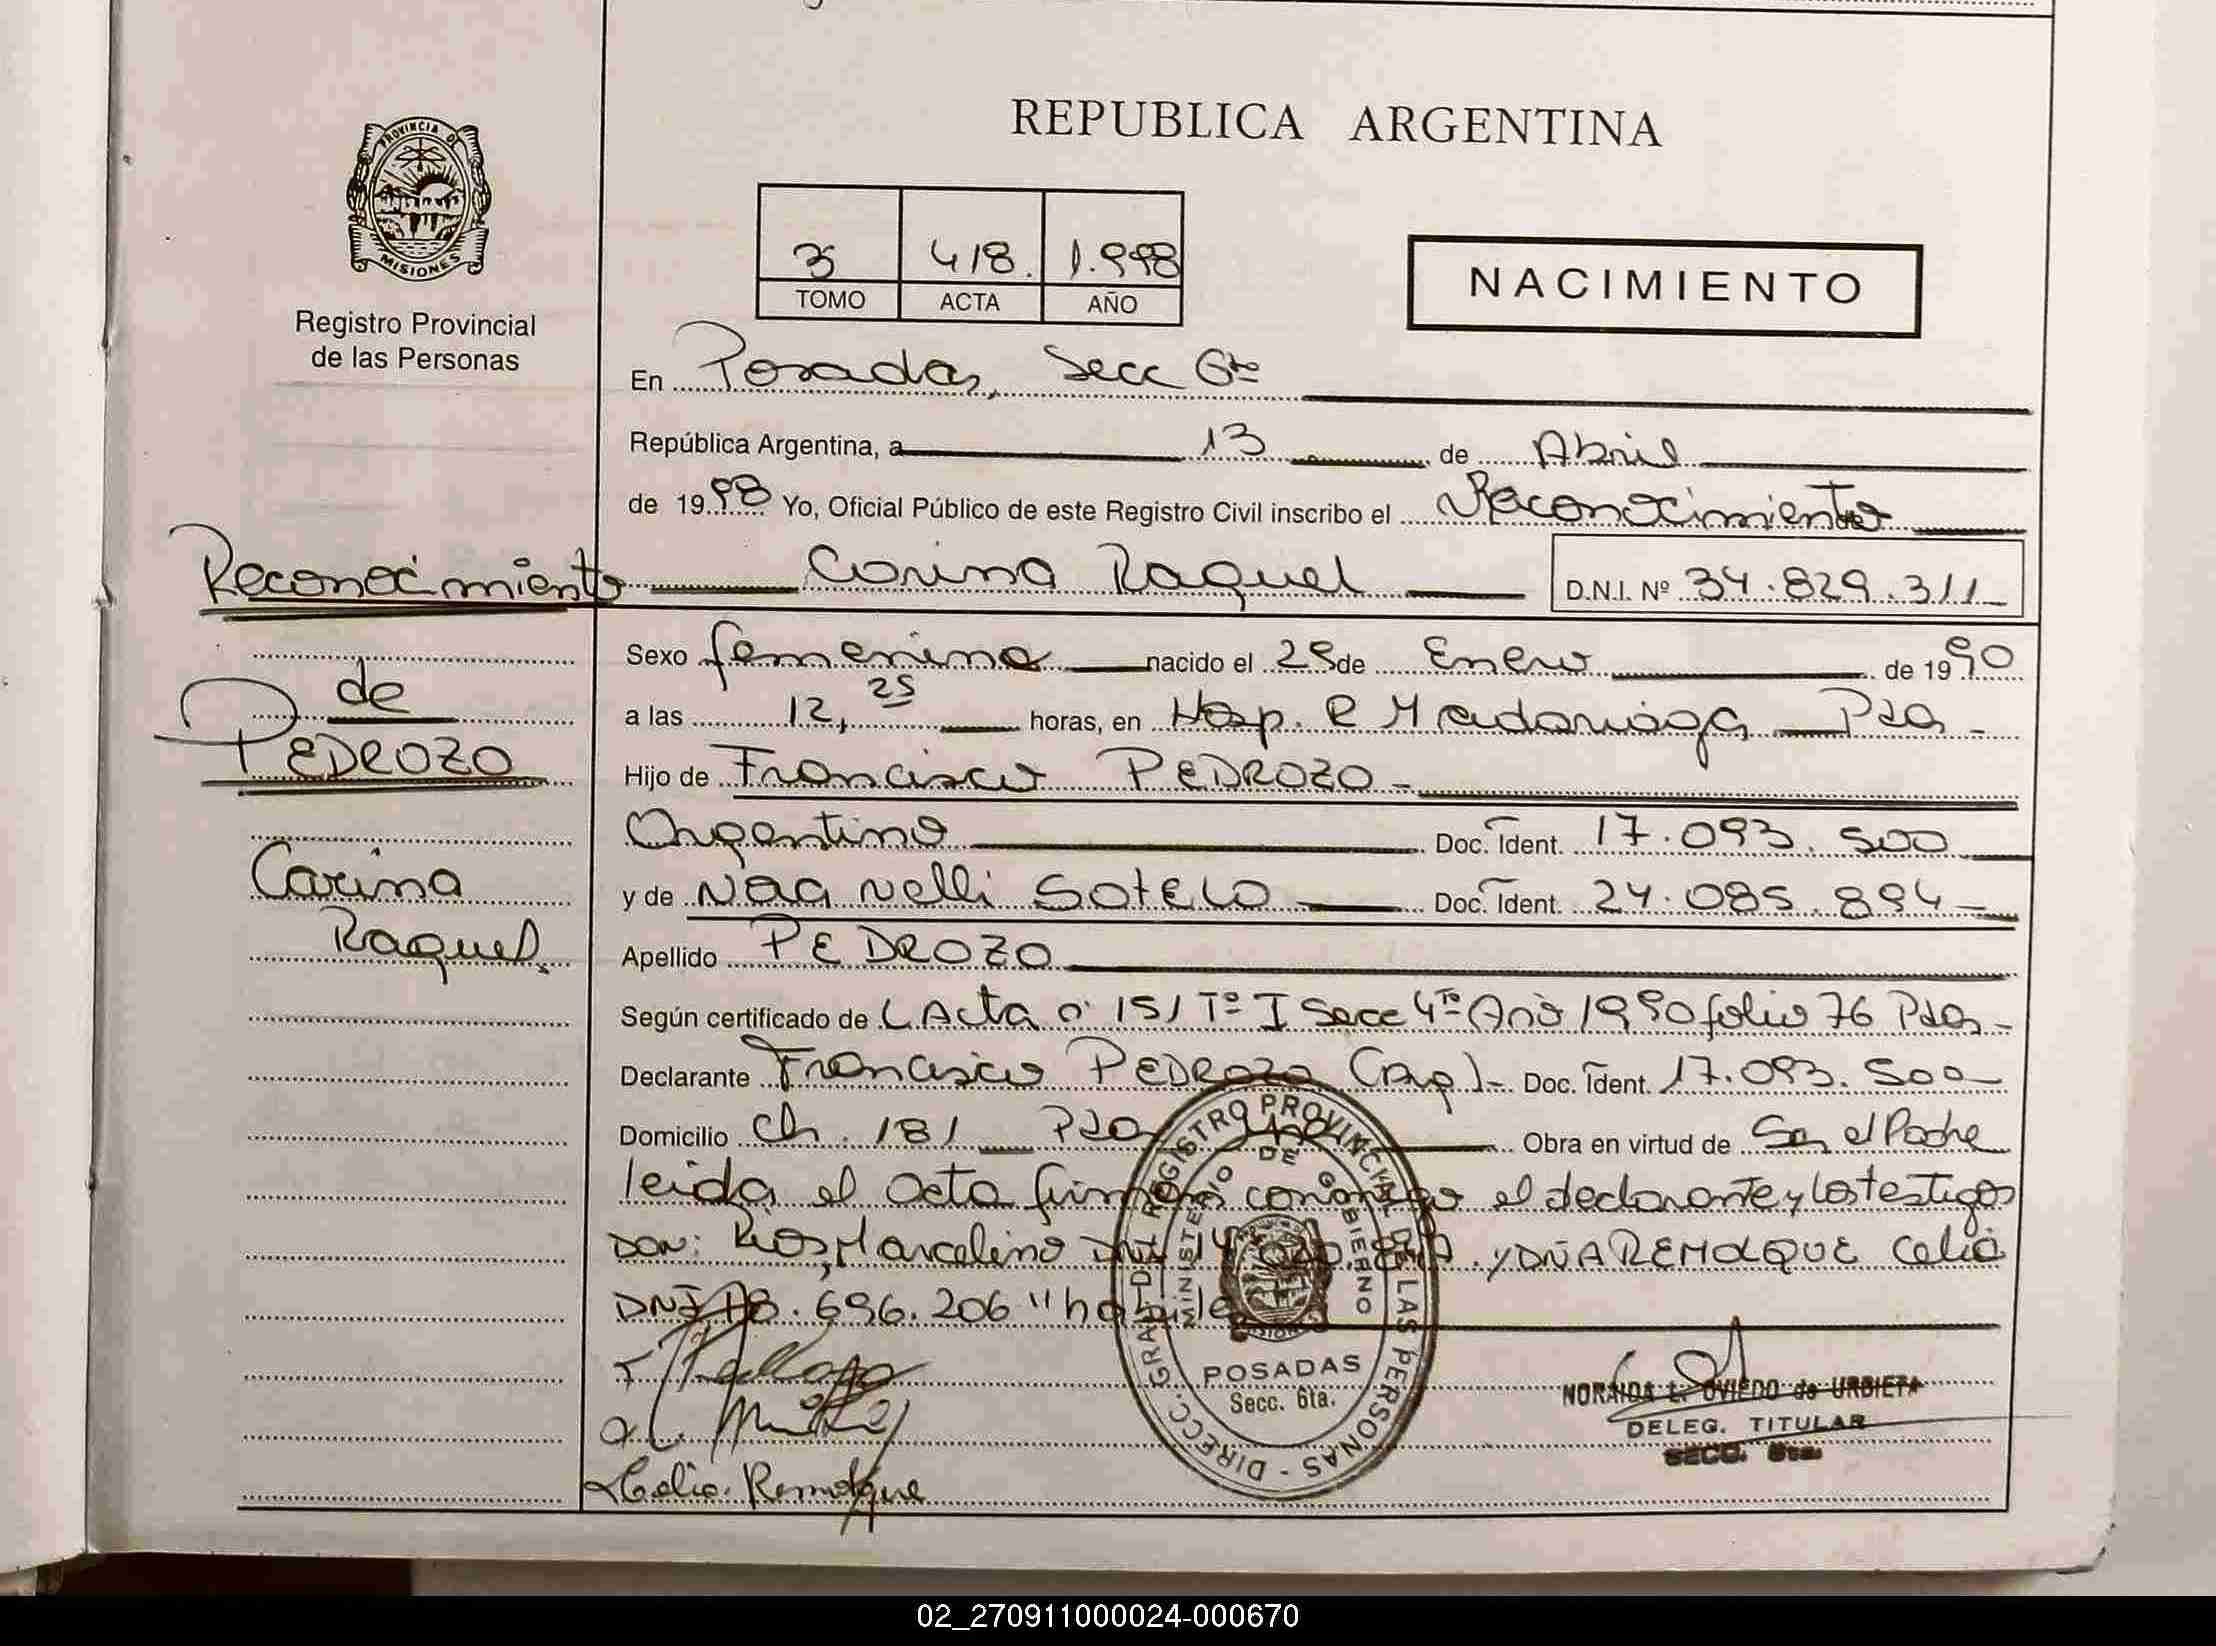 REPUBLICA ARGENTINA
PROVINCIA DE
MISIONES
Registro Provincial
de las Personas
418. 1.998
TOMO ACTA AÑO
NACIMIENTO
En Posadas, Secc 6ta
República Argentina, a 13 de Abril
de 1998 Yo, Oficial Público de este Registro Civil inscribo el Reconocimiento
Carina Raquel D.N.I. Nº 34.829.311
Sexo femenino nacido el 29 de Enero de 1990
a las 12,25 horas, en Hosp. R Madariaga Pdas
Hijo de Francisco PEDROZO
Argentino Doc. Ident. 17.093.500
y de Noa Nelli SOTELO Doc. Ident. 24.085.894
Apellido PEDROZO
Según certificado de Acta nº 151 Tº I Secc 4ta Año 1990 folio 76 Pdas
Declarante Francisco PEDROZO (Arg) Doc. Ident. 17.093.500
Domicilio Ch. 181 Pdas Obra en virtud de Ser el Padre
leida el acta firman conmigo el declarante y los testigos
DON: Rios, Marcelino DNI 14 y DÑA REMOQUE Celia
DNI 18.696.206 "habiles
Celia Remoque
Reconocimiento
de
PEDROZO
Carina
Raquel.
DIRECC. GRAL. DEL REGISTRO PROVINCIAL DE LAS PERSONAS
MINISTERIO DE GOBIERNO
POSADAS
Secc. 6ta.
NORAIDA L. OVIEDO de URBIETA
DELEG. TITULAR
SECC. 6ta.
02_270911000024-000670